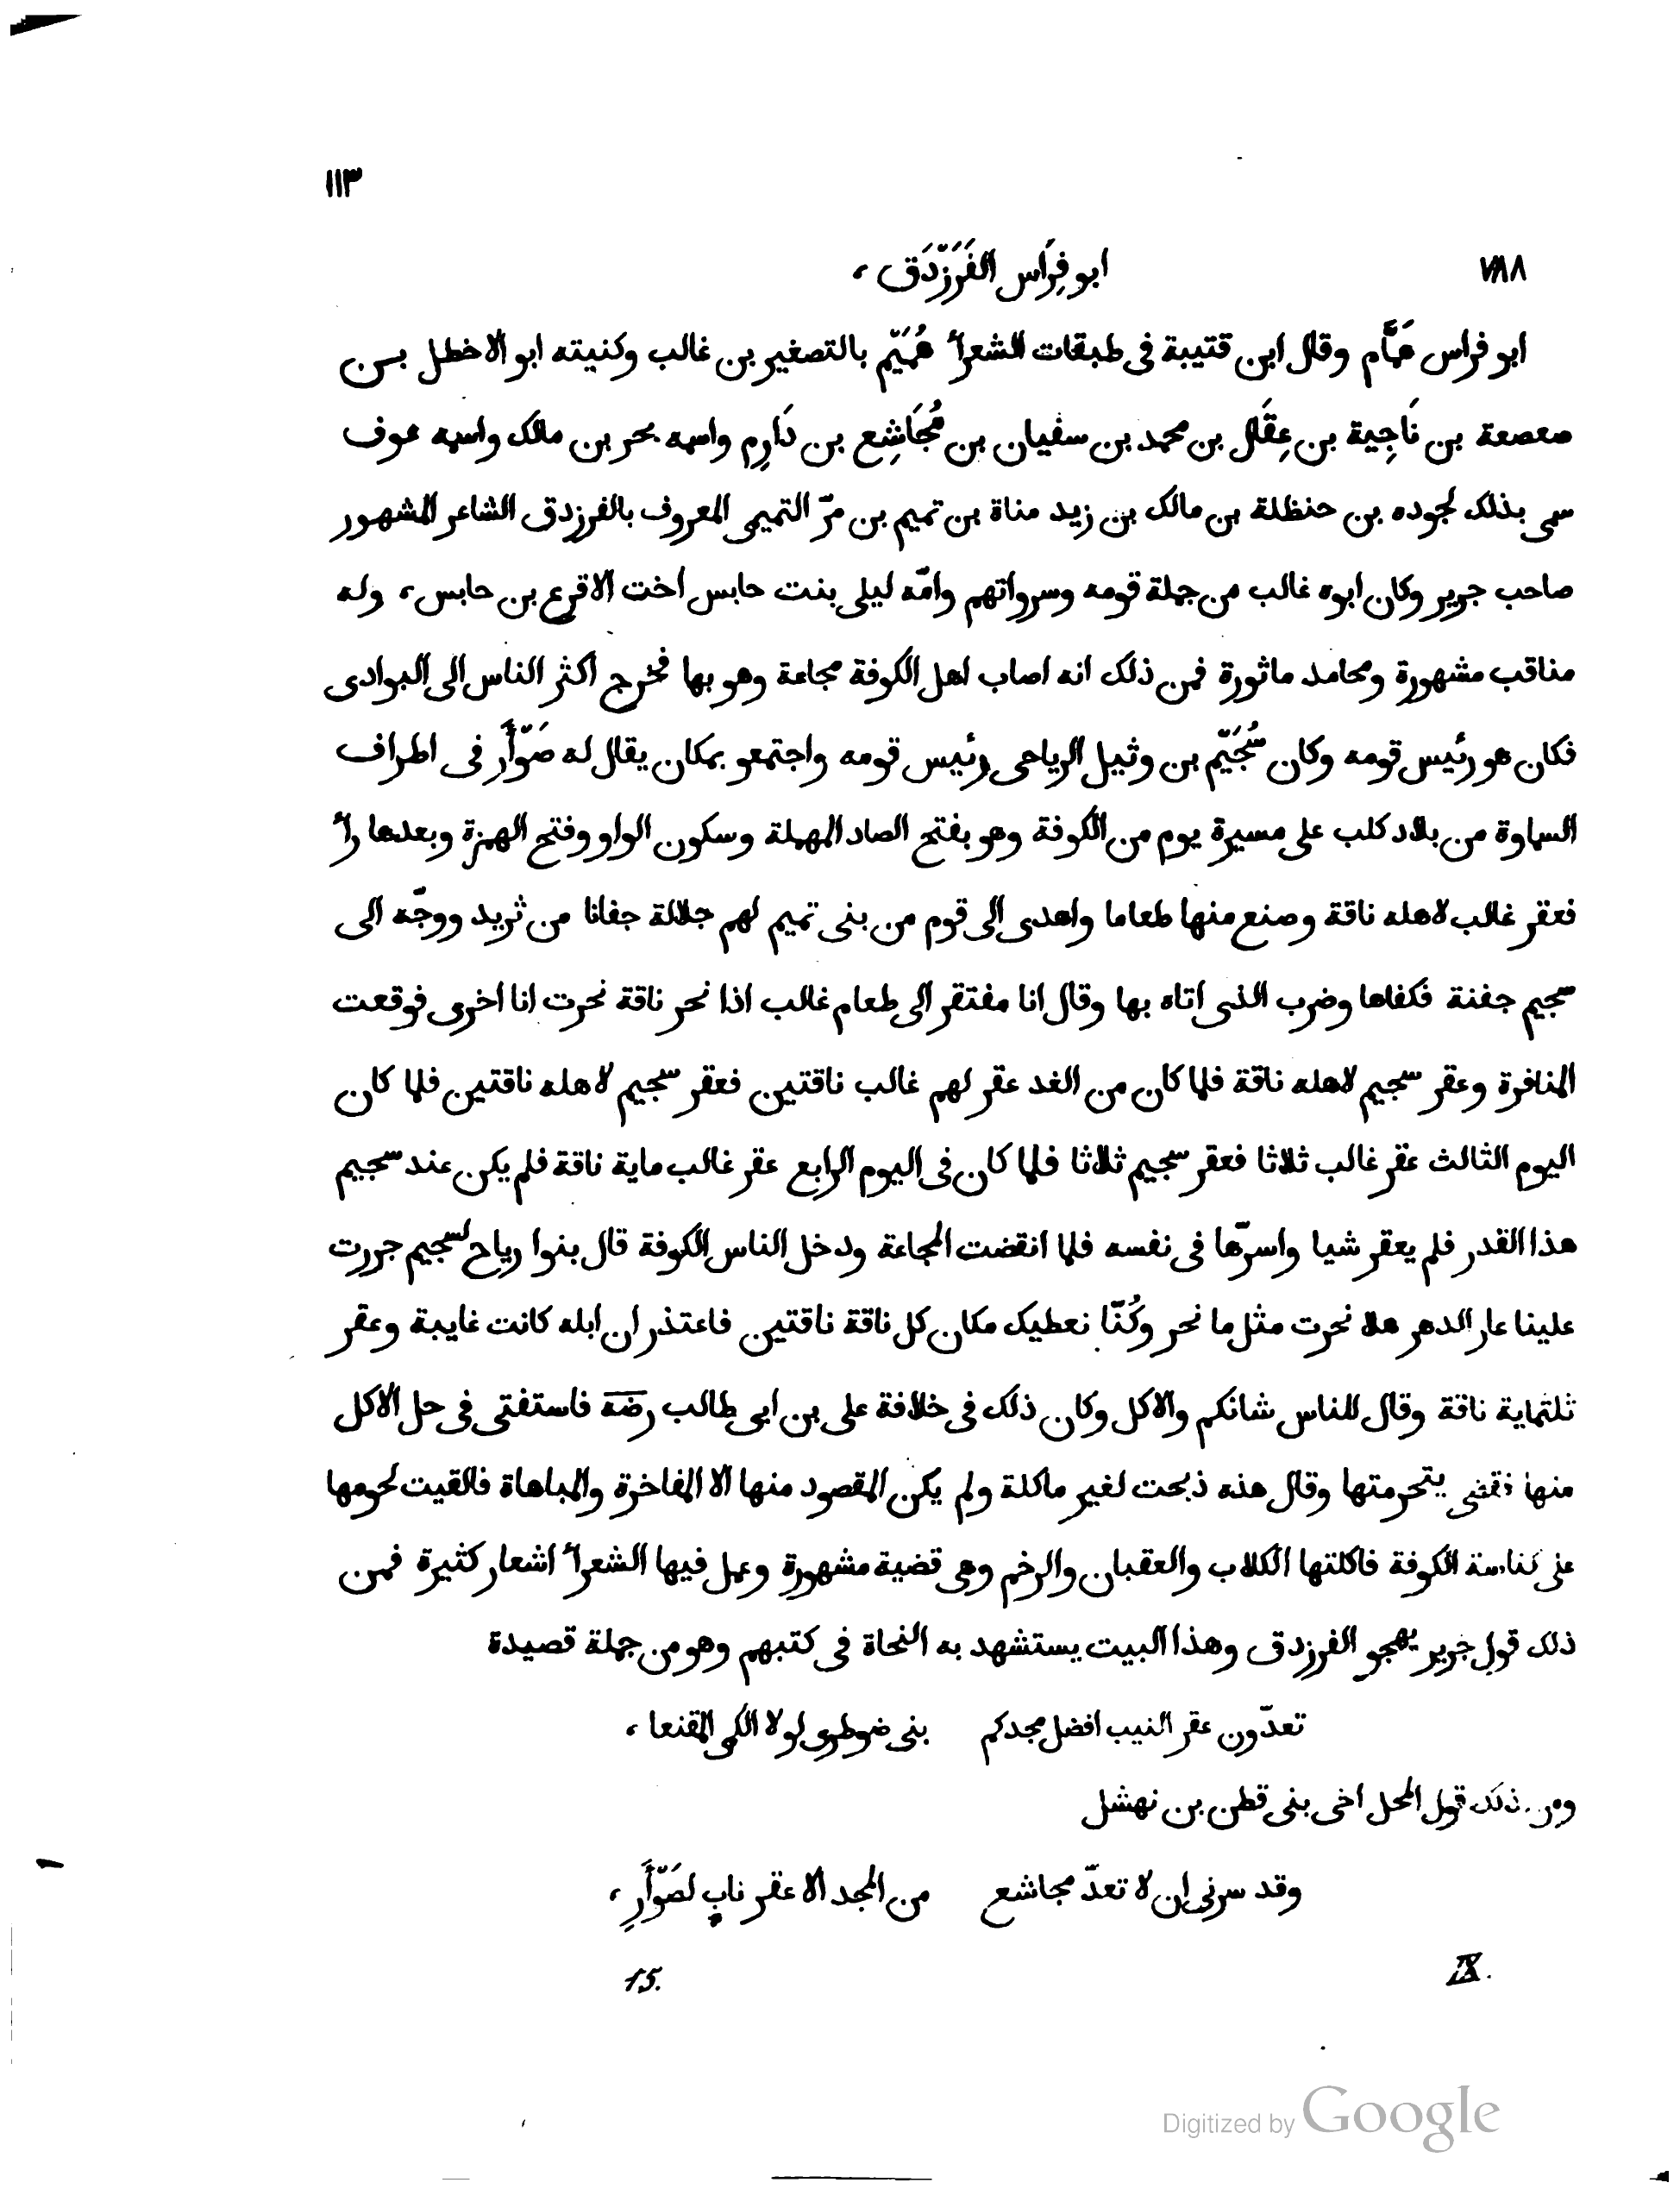 ١١٣
٧٨٨
ابو فِرَاس الفَرَزْدَق ،
ابو فراس هَمَّام وقال ابن قتيبة فى طبقات الشعرآ هُمَيّم بالتصغير بن غالب وكنيته ابو الاخطل بن
صعصعة بن نَاجِية بن عِقَال بن محمد بن سفيان بن مُجَاشِع بن دَارِم واسمه بحر بن مالك واسمه عوف
سمى بذلك لجوده بن حنظلة بن مالك بن زيد مناة بن تميم بن مرّ التميمى المعروف بالفرزدق الشاعر المشهور
صاحب جرير وكان ابوه غالب من جملة قومه وسرواتهم وامّه ليلى بنت حابس اخت الاقرع بن حابس، وله
مناقب مشهورة ومحامد ماثورة فمن ذلك انه اصاب اهل الكوفة مجاعة وهو بها فخرج اكثر الناس الى البوادى
فكان هو رئيس قومه وكان سُحَيّم بن وثيل الرياحى رئيس قومه واجتمعو بمكان يقال له صَوْأَر فى اطراف
السماوة من بلاد كلب على مسيرة يوم من الكوفة وهو بفتح الصاد المهملة وسكون الواو وفتح الهمزة وبعدها رآ
فعقر غالب لاهله ناقة وصنع منها طعاما واهدى الى قوم من بنى تميم لهم جلالة جفانا من ثريد ووجّه الى
سحيم جفنة فكفاها وضرب الذى اتاه بها وقال انا مفتقر الى طعام غالب اذا نحر ناقة نحرت انا اخرى فوقعت
المنافرة وعقر سحيم لاهله ناقة فلما كان من الغد عقر لهم غالب ناقتين فعقر سحيم لاهله ناقتين فلما كان
اليوم الثالث عقر غالب ثلاثا فعقر سحيم ثلاثا فلما كان فى اليوم الرابع عقر غالب ماية ناقة فلم يكن عند سحيم
هذا القدر فلم يعقر شيا واسرّها فى نفسه فلما انقضت المجاعة ودخل الناس الكوفة قال بنوا رياح لسحيم جررت
علينا عار الدهر هلا نحرت مثل ما نحر وكُنّا نعطيك مكان كل ناقة ناقتين فاعتذر ان ابله كانت غايبة وعقر
ثلثماية ناقة وقال للناس شانكم والاكل وكان ذلك فى خلافة على بن ابى طالب رضه فاستفتى فى حل الاكل
منها فقضى بتحرمتها وقال هذه ذبحت لغير ماكلة ولم يكن المقصود منها الا المفاخرة والمباهاة فالقيت لحومها
على كناسة الكوفة فاكلتها الكلاب والعقبان والرخم وهى قضية مشهورة وعمل فيها الشعرآ اشعار كثيرة فمن
ذلك قول جرير يهجو الفرزدق وهذا البيت يستشهد به النحاة فى كتبهم وهو من جملة قصيدة
تعدّون عقر النيب افضل مجدكم بنى ضوطرى لولا الكمى المقنعا ،
ومن ذلك قول المحل اخى بنى قطن بن نهشل
وقد سرنى ان لا تعدّ مجاشع من المجد الا عقر نابٍ لصَوْأَرِ ،
IX. 15.
Digitized by Google